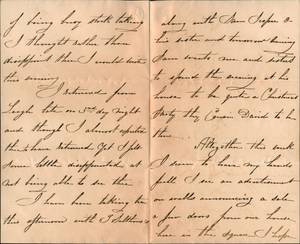 of being busy stock taking
I thought rather than
disappoint thee I would write
this evening
I returned from
Leigh late on day night
and though I almost expected
thee to have returned yet I felt
some little disappointment at
not being able to see thee
I have been taking tea
this afternoon with
along with Sam &
his sister and tomorrow evening
Sam wants me and sister
to spend the evening at his
house to be quite a Christmas
Party thy Cousin David to be
there
Altogether this week
I seem to have my hands
full I see an advertisement
on walls announcing a sale
a few doors from our house
here in the square I hope